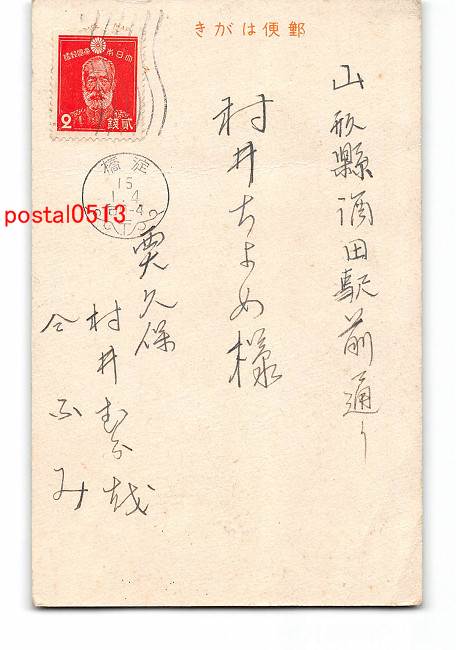 きがは便郵
大日本帝國郵便
2 貳銭
淀橋
15
1.4
postal0513
山形縣酒田駅前通り
村井ちよめ様
村井
ふみ